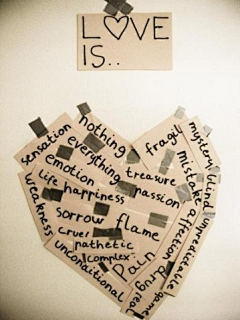 LOVE
IS..
nothing
fragil
sensation
everything
mystery
emotion
treasure
mistake
blind
life
happiness
passion
weakness
sorrow
flame
affection
unpredictable
cruel
pathetic
complex
pain
unconditional
drug